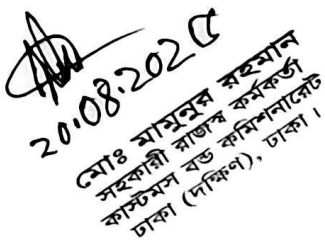 20.08.202৫
মোঃ মামুনুর রহমান
সহকারী রাজস্ব কর্মকর্তা
কাস্টমস বন্ড কমিশনারেট
ঢাকা (দক্ষিণ), ঢাকা।